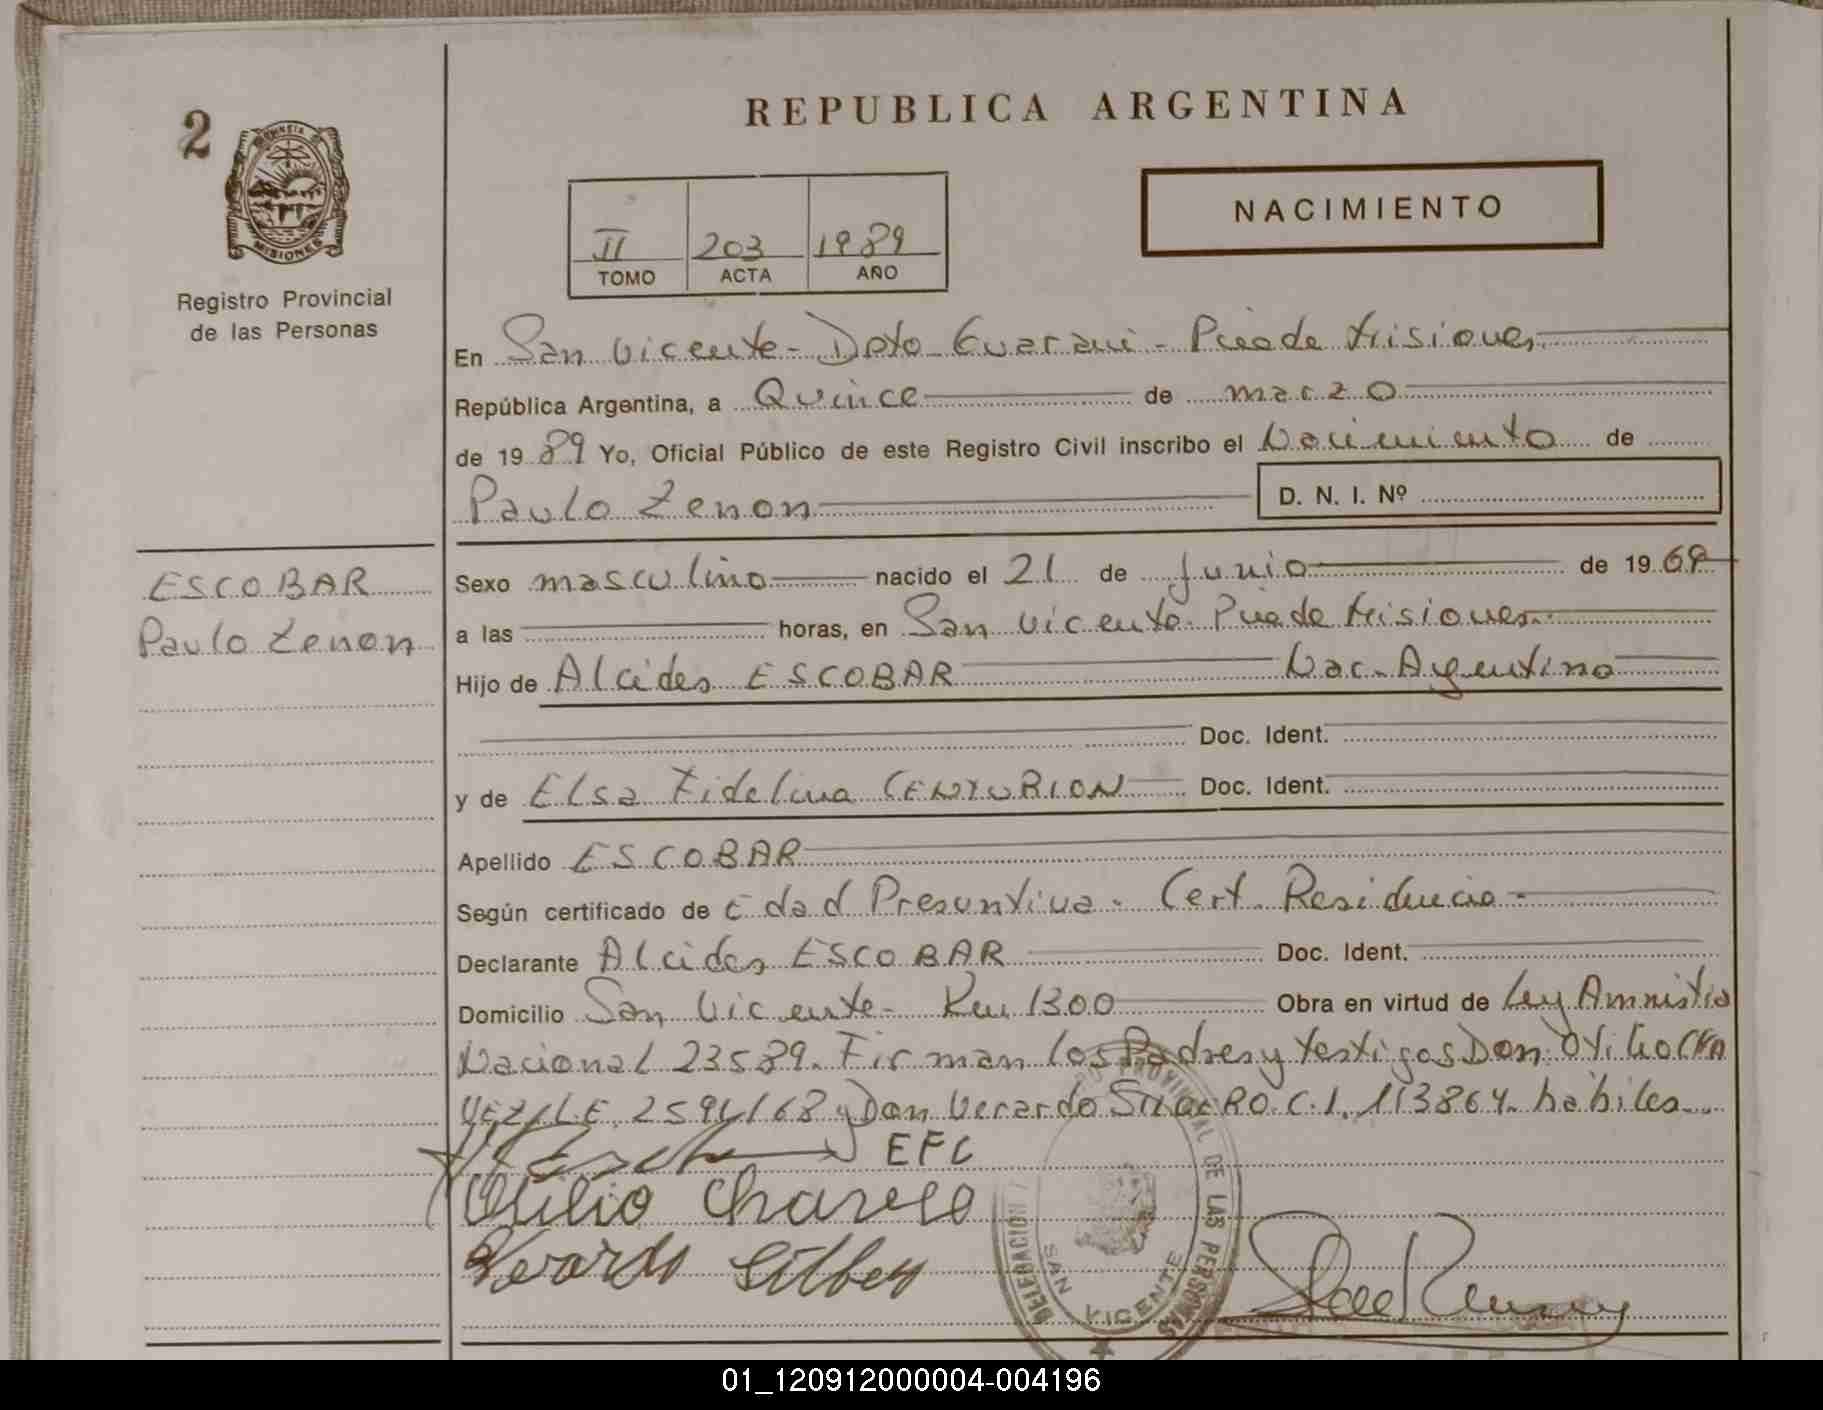 2
PROVINCIA DE
MISIONES
Registro Provincial
de las Personas
REPUBLICA ARGENTINA
NACIMIENTO
II 203 1989
TOMO ACTA AÑO
En San Vicente - Dpto Guarani - Pcia de Misiones
República Argentina, a Quince de marzo
de 1989 Yo, Oficial Público de este Registro Civil inscribo el Nacimiento de
Paulo Zenon D. N. I. Nº
ESCOBAR
Paulo Zenon
Sexo masculino nacido el 21 de Junio de 1969
a las horas, en San Vicente. Pcia de Misiones.
Hijo de Alcides ESCOBAR Nac. Argentino
Doc. Ident.
y de Elsa Fidelina CENTURION Doc. Ident.
Apellido ESCOBAR
Según certificado de Edad Presuntiva - Cert. Residencia -
Declarante Alcides ESCOBAR Doc. Ident.
Domicilio San Vicente - Km 1300 Obra en virtud de Ley Amnistia
Nacional 23589. Firman los Padres y testigos Don Otilio CHA
VEZ, L.E. 2594168 y Don Verardo C.I. 113864. habiles.
EFC
Otilio Chavez
Verardo
DELEGACION PROVINCIAL DE LAS PERSONAS
SAN VICENTE
01_120912000004-004196